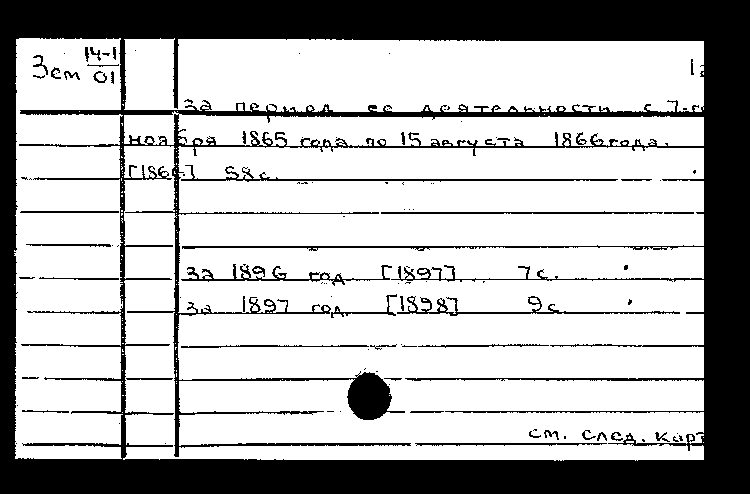 Зст 14-1
01
за период ее деятельности с 7-го
ноября 1865 года по 15 августа 1866 года.
[1866] 58 с.
за 1896 год [1897] 7 с.
за 1897 год. [1898] 9 с.
см. след. карт